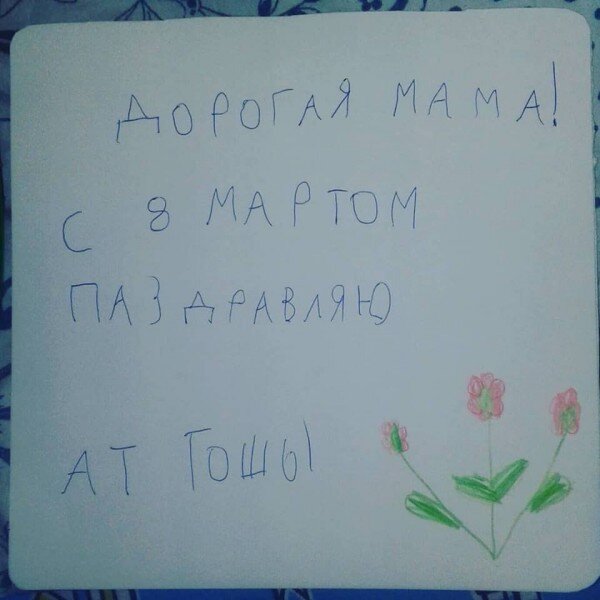 ДОРОГАЯ МАМА!
С 8 МАРТОМ
ПАЗДРАВЛЯЮ
АТ ГОШЫ